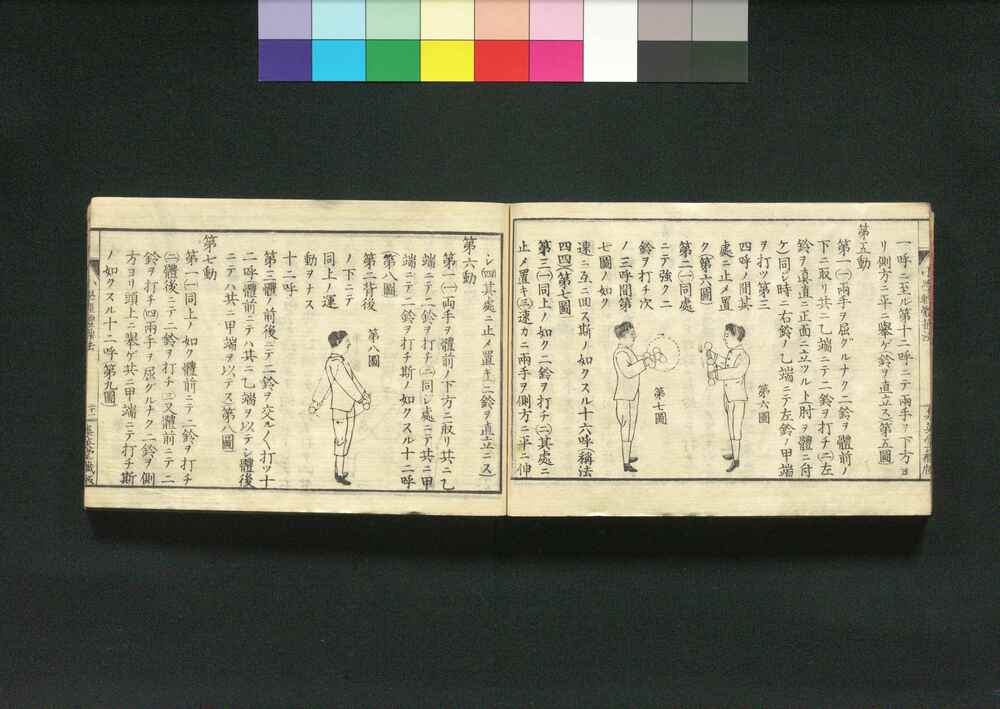 一呼ニ至ル第十二呼ニテ兩手ヲ下方ヨ
リ側方ニ平ニ擧ゲ鈴ヲ直立ス第五圖
第五動
第一(一)兩手ヲ屈グルナク二鈴ヲ體前ノ
下ニ取リ共ニ乙端ニテ二鈴ヲ打チ(二)左
鈴ヲ眞直ニ正面ニ立ツル上肘ヲ體ニ付
ケ同シ時ニ右鈴ノ乙端ニテ左鈴ノ甲端
ヲ打ツ第三
四呼ノ間其
處ニ止メ置
ク(第六圖)
第二(一)同處
ニテ強ク二
鈴ヲ打チ次
ノ三呼間第
七圖ノ如ク
速ニ互ニ回ス斯ノ如クスル十六呼稱法
四四(第七圖)
第三(一)同上ノ如ク二鈴ヲ打チ(二)其處ニ
止メ置キ(三)速カニ兩手ヲ側方ニ平ニ伸
第六圖
第七圖
シ(四)其處ニ止メ置キ二鈴ヲ直立ニス
第六動
第一(一)兩手ヲ體前ノ下方ニ取リ共ニ乙
端ニテ二鈴ヲ打チ(二)同シ處ニテ共ニ甲
端ニテ二鈴ヲ打チ斯ノ如クスル十二呼
(第八圖)
第二背後
ノ下ニテ
同上ノ運
動ヲナス
十二呼
第三體ノ前後ニテ二鈴ヲ交ル〱打ツ十
二呼體前ニテハ共ニ乙端ヲ以テシ體後
ニテハ共ニ甲端ヲ以テス第八圖
第八圖
第七動
第一(一)同上ノ如ク體前ニテ二鈴ヲ打チ
(二)體後ニテ二鈴ヲ打チ(三)又體前ニテ二
鈴ヲ打チ(四)兩手ヲ屈グルナク二鈴ヲ側
方ヨリ頭上ニ擧ゲ共ニ甲端ニテ打チ斯
ノ如クスル十二呼第九圖